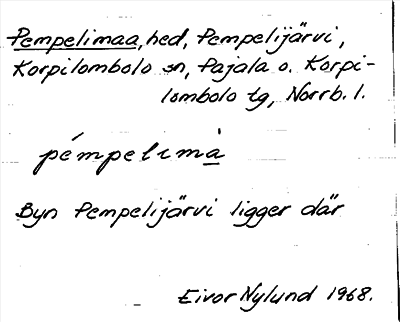 Pempelimaa, hed, Pempelijärvi,
Korpilombolo sn, Pajala o. Korpi-
lombolo tg, Norrb. l.
pémpelimà
Byn Pempelijärvi ligger där
Eivor Nylund 1968.